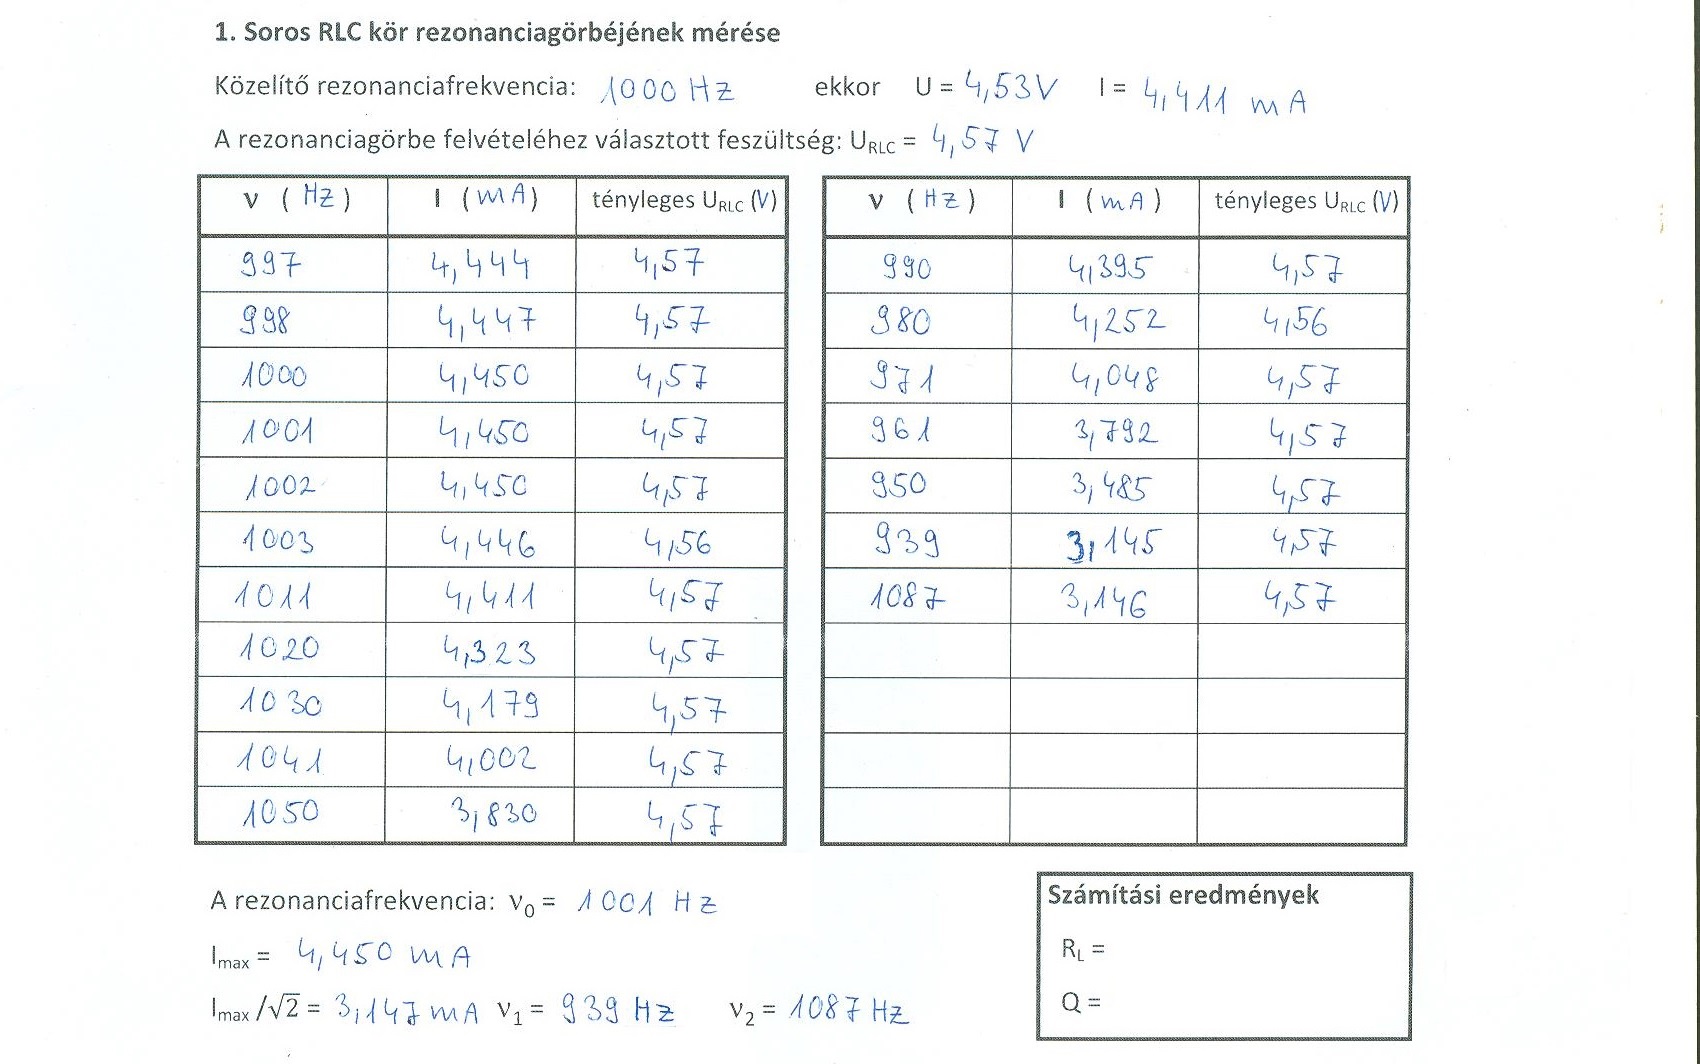 1. Soros RLC kör rezonanciagörbéjének mérése
Közelítő rezonanciafrekvencia: 1000 Hz ekkor U = 4,53V I = 4,411 mA
A rezonanciagörbe felvételéhez választott feszültség: URLC = 4,57 V
ν ( Hz ) I ( mA ) tényleges URLC (V)
997 4,444 4,57
998 4,447 4,57
1000 4,450 4,57
1001 4,450 4,57
1002 4,450 4,57
1003 4,446 4,56
1011 4,411 4,57
1020 4,323 4,57
1030 4,179 4,57
1041 4,002 4,57
1050 3,830 4,57
ν ( Hz ) I ( mA ) tényleges URLC (V)
990 4,395 4,57
980 4,252 4,56
971 4,048 4,57
961 3,792 4,57
950 3,485 4,57
939 3,145 4,57
1087 3,146 4,57
A rezonanciafrekvencia: ν0 = 1001 Hz
Imax = 4,450 mA
Imax /√2 = 3,147 mA ν1 = 939 Hz ν2 = 1087 Hz
Számítási eredmények
RL =
Q =